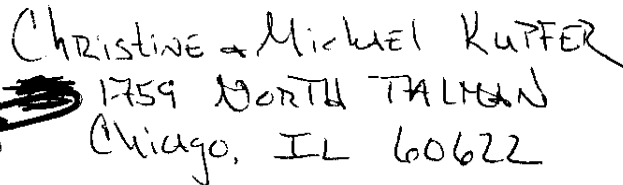 Christine & Michael Kupfer
1759 North Talman
Chicago, IL 60622